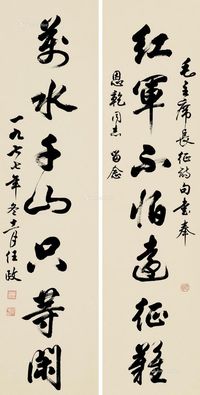 毛主席長征詩句書奉
恩乾同志留念
紅軍不怕遠征難
萬水千山只等閑
一九六七年冬十一月任政